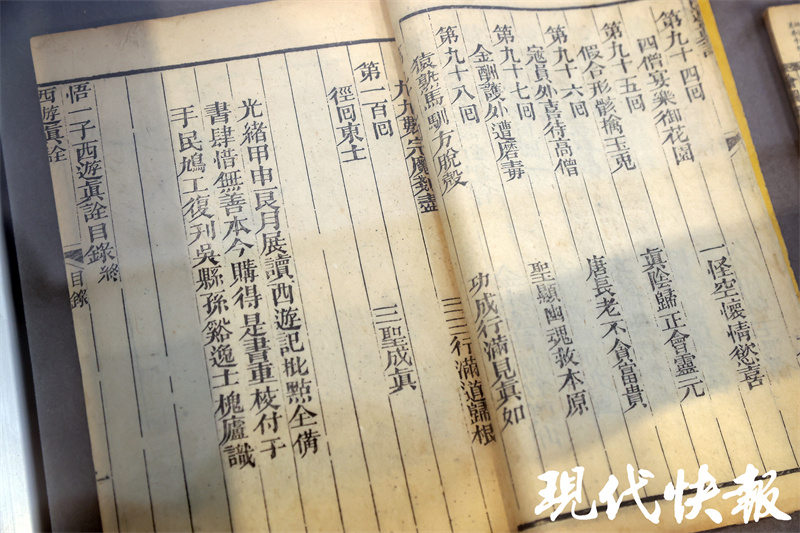 第九十四回
四僧宴樂御花園　一怪空懷情慾喜
第九十五回
假合形骸擒玉兎　眞陰歸正會靈元
第九十六回
寇員外喜待高僧　唐長老不貪富貴
第九十七回
金酬護外遭磨毒　聖顯幽魂救本原
第九十八回
猿熟馬馴方脫殼　功成行滿見眞如
九九數完魔剗盡　三三行滿道歸根
第一百回
徑回東土　三聖成眞
光緒甲申艮月展讀西遊記批點全備
書肆惜無善本今購得是書重校付于
手民鳩工復刋吳縣孫谿逸士槐廬識
悟一子西遊眞詮目錄終
西遊眞詮　目錄
現代快報